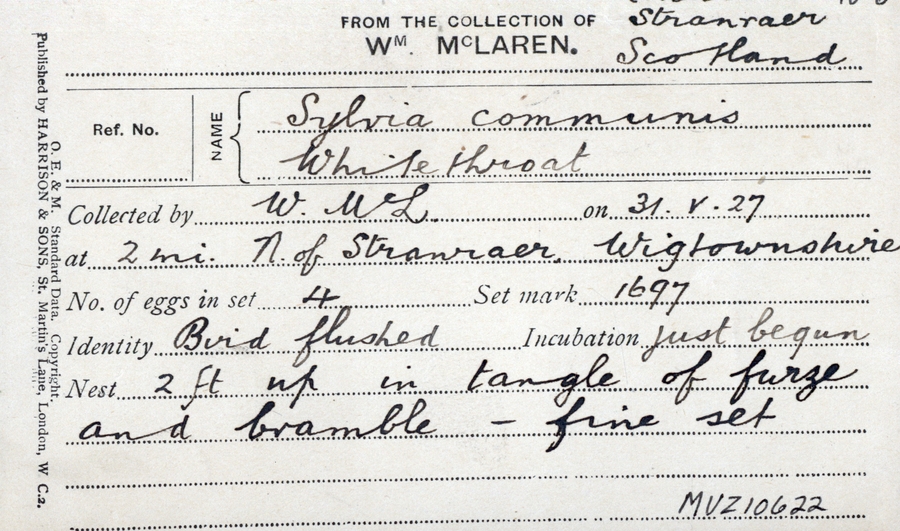 FROM THE COLLECTION OF Stranraer
Wᴹ. MᶜLAREN. Scotland
Ref. No. NAME Sylvia communis
Whitethroat
Collected by W. McL. on 31. V. 27
at 2 mi. N. of Stranraer, Wigtownshire
No. of eggs in set 4 Set mark 1697
Identity Bird flushed Incubation just begun
Nest 2 ft up in tangle of furze
and bramble - fine set
MVZ10622
O. E. & M. Standard Data. Copyright.
Published by HARRISON & SONS, St. Martin's Lane, London, W C.2.